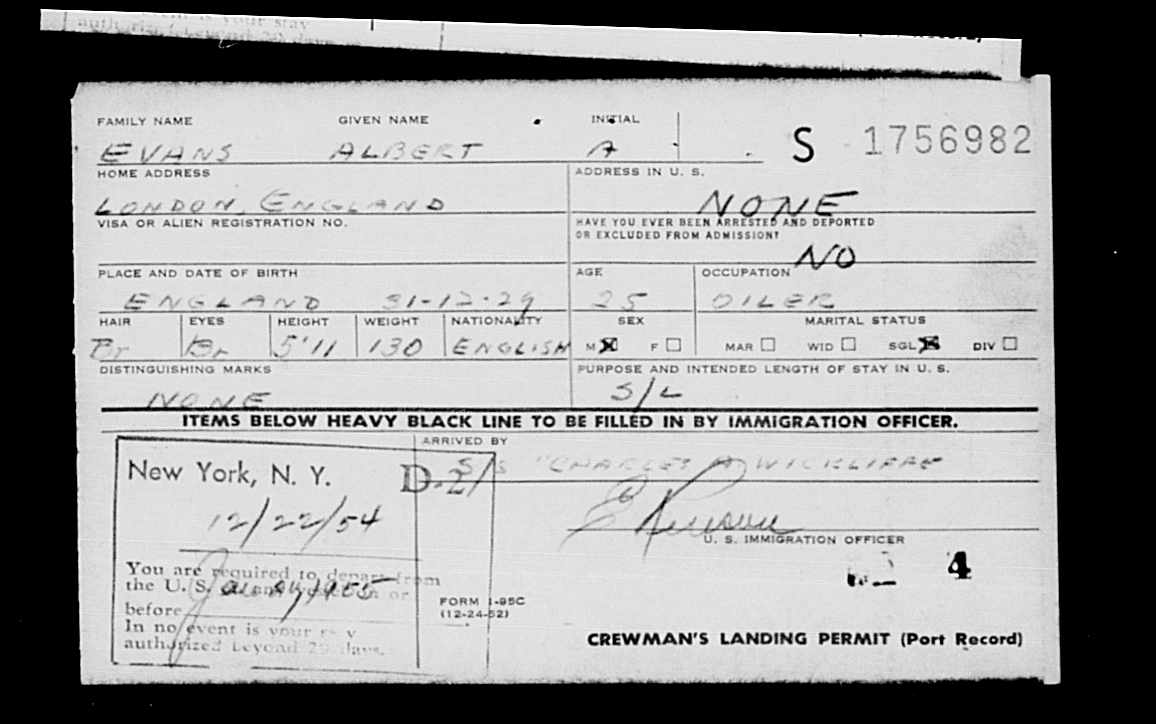 FAMILY NAME GIVEN NAME INITIAL
EVANS ALBERT A S 1756982
HOME ADDRESS ADDRESS IN U. S.
LONDON, ENGLAND NONE
VISA OR ALIEN REGISTRATION NO. HAVE YOU EVER BEEN ARRESTED AND DEPORTED
OR EXCLUDED FROM ADMISSION?
NO
PLACE AND DATE OF BIRTH AGE OCCUPATION
ENGLAND 31-12-29 25 OILER
HAIR EYES HEIGHT WEIGHT NATIONALITY SEX MARITAL STATUS
Br Br 5'11 130 ENGLISH M F MAR WID SGL DIV
DISTINGUISHING MARKS PURPOSE AND INTENDED LENGTH OF STAY IN U. S.
NONE S/L
ITEMS BELOW HEAVY BLACK LINE TO BE FILLED IN BY IMMIGRATION OFFICER.
ARRIVED BY
New York, N. Y. D-2 S/S "CHARLES A WICKLIFFE
12/22/54
U. S. IMMIGRATION OFFICER
You are required to depart from
the U. S. on or
before
4
FORM I-95C
(12-24-52)
In no event is your stay
authorized beyond 29 days.
CREWMAN'S LANDING PERMIT (Port Record)